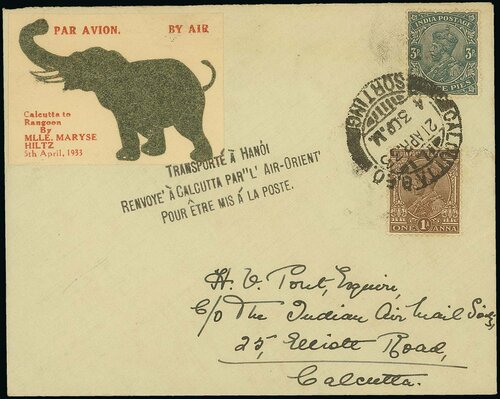 PAR AVION. BY AIR
Calcutta to
Rangoon
By
MLLE. MARYSE
HILTZ
5th April, 1933
INDIA POSTAGE
3 PS
TRANSPORTÉ À HANÖI
RENVOYÉ À CALCUTTA PAR "L' AIR-ORIENT'
POUR ÊTRE MIS À LA POSTE.
CALCUTTA G.P.O.
SORTING
3.30 P.M.
ONE ANNA
1A
H. V. Pont, Esquire,
C/o The Indian Air Mail
25, Elliott Road,
Calcutta.